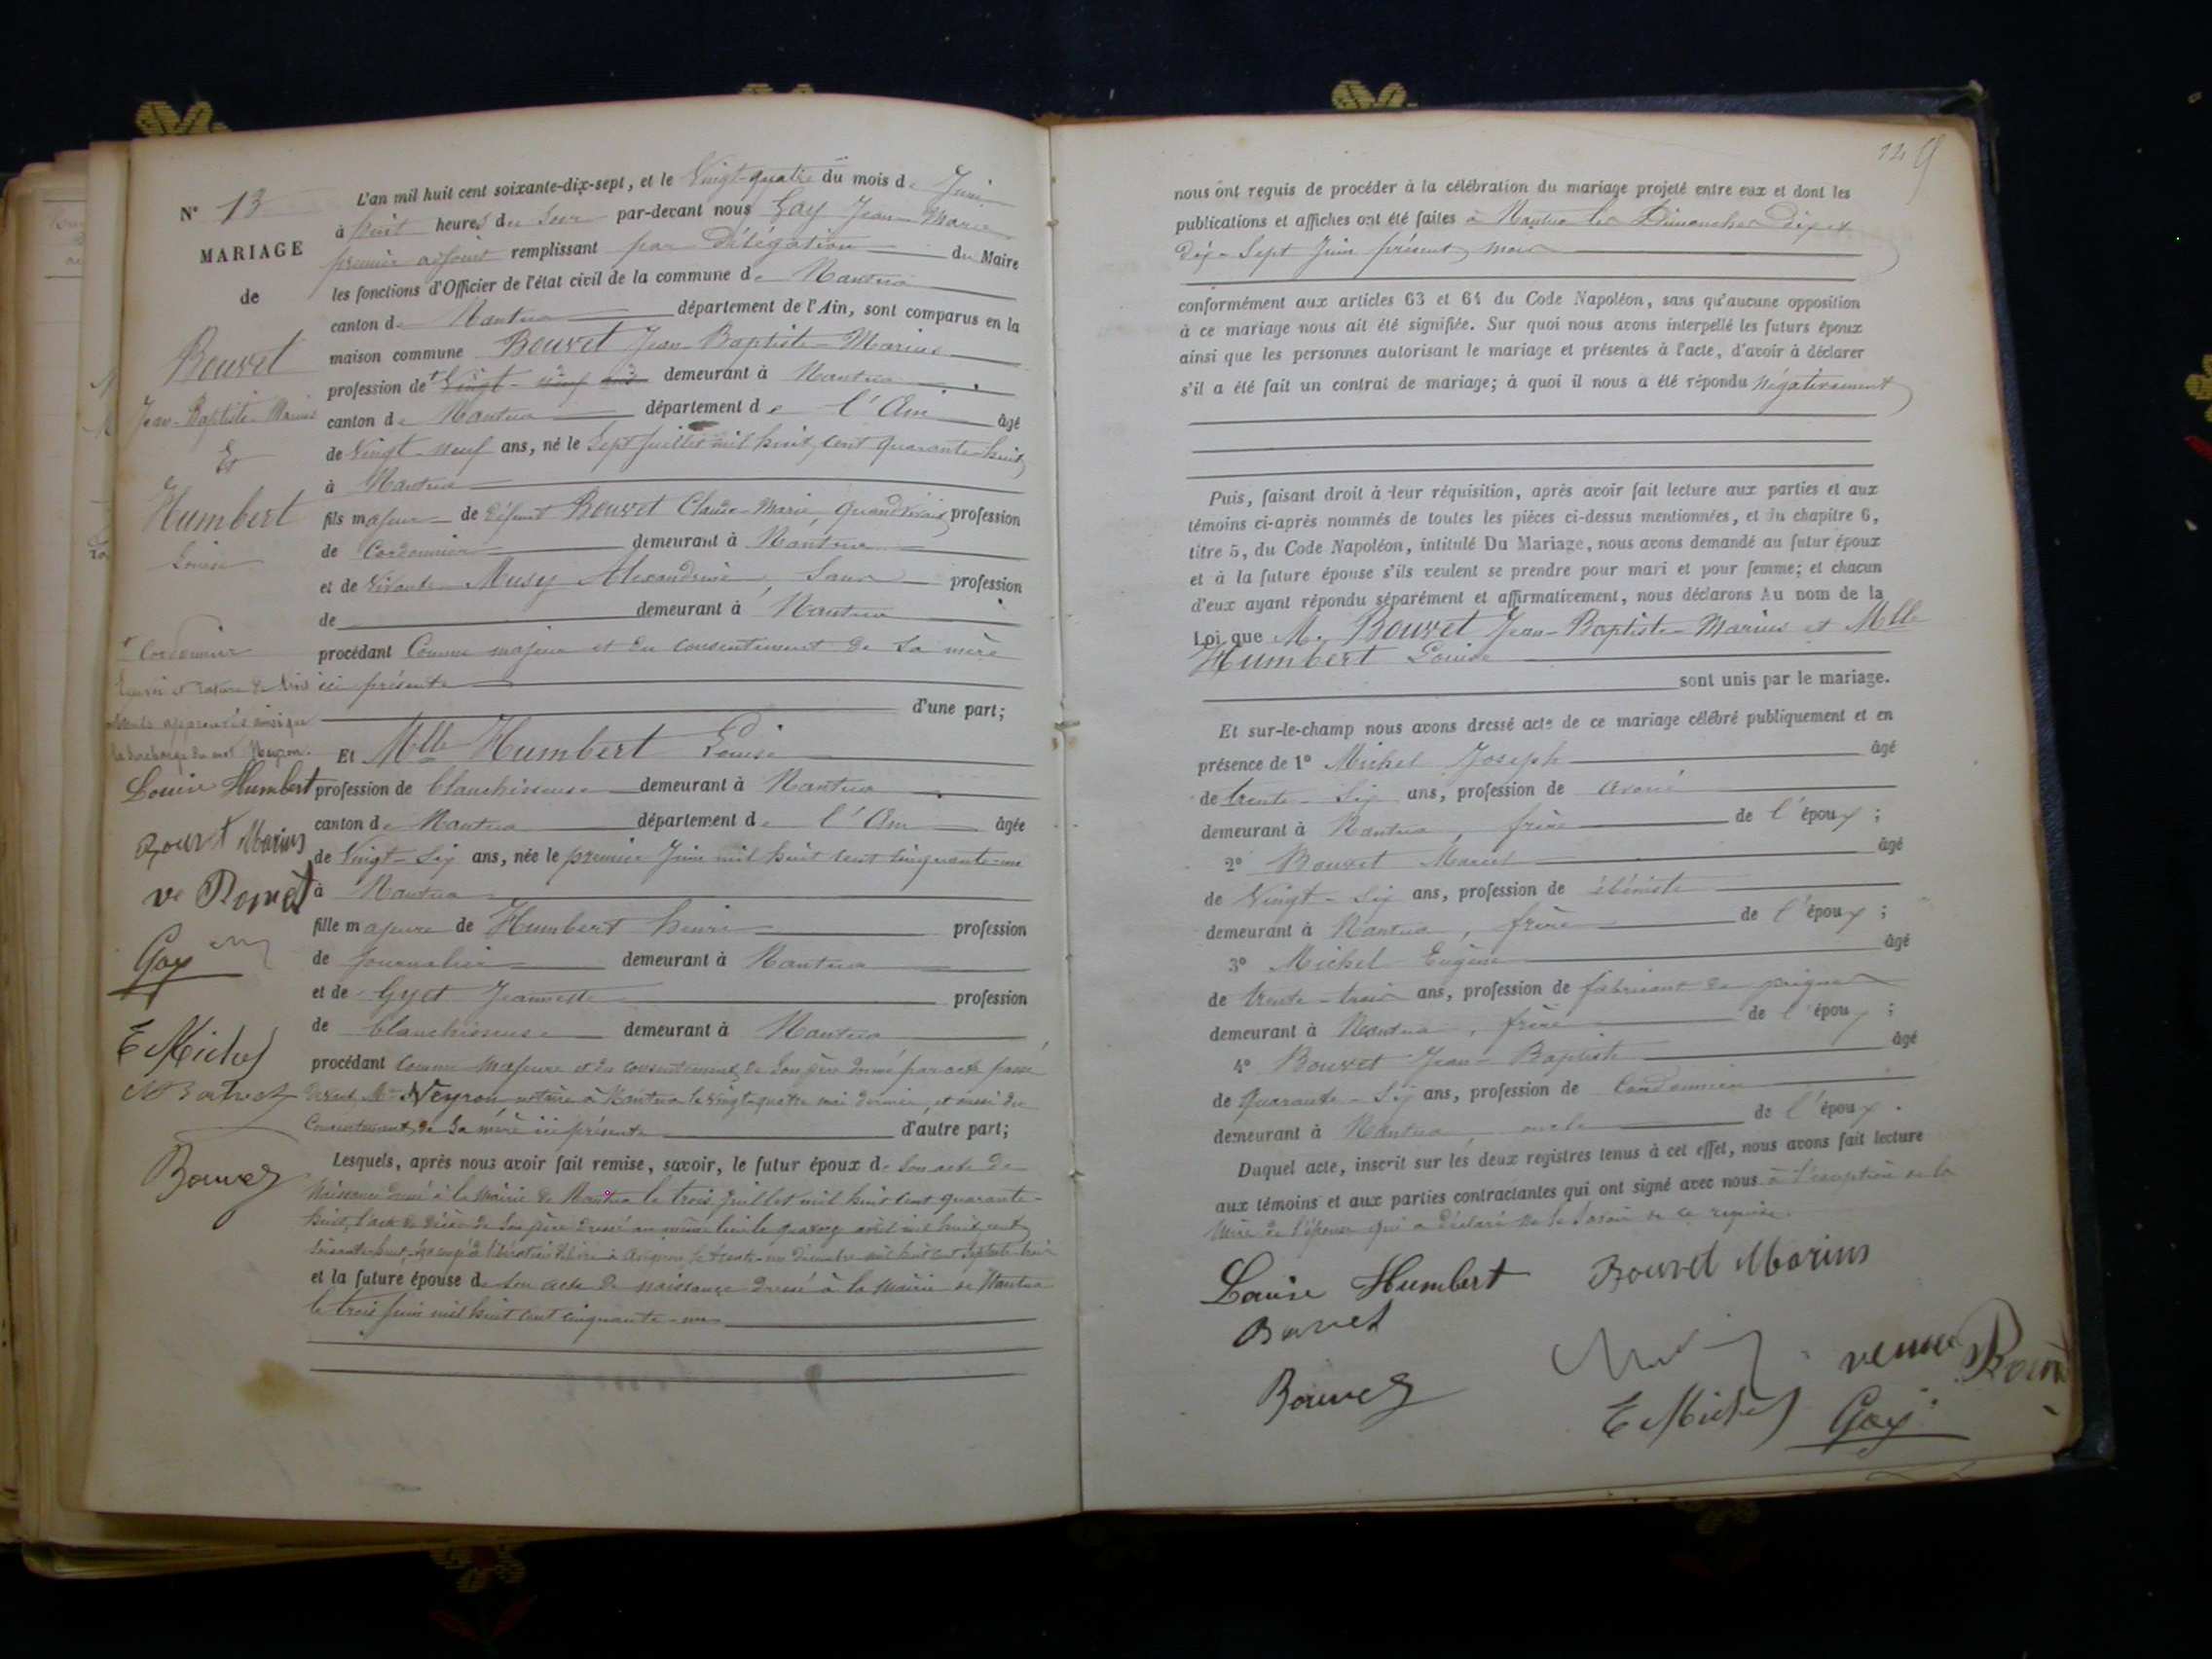 N° 13
MARIAGE
de
Bouvet
Jean-Baptiste-Marius
Et
Humbert
Louise
+ Cordonnier
Renvoi et rature de trois
mots approuvés ainsi que
la surcharge du mot Neyron.
Louise Humbert
Bouvet Marius
ve Bouvet
Gay
E Michel
Bouvet
L'an mil huit cent soixante-dix-sept, et le Vingt-quatre du mois de Juin
à huit heures du Soir par-devant nous Gay Jean-Marie
premier adjoint remplissant par Délégation du Maire
les fonctions d'Officier de l'état civil de la commune de Nantua
canton de Nantua département de l'Ain, sont comparus en la
maison commune Bouvet Jean-Baptiste-Marius
profession de + Vingt-neuf ans demeurant à Nantua
canton de Nantua département de l'Ain âgé
de Vingt-neuf ans, né le Sept Juillet mil huit cent quarante-huit
à Nantua
fils majeur de défunt Bouvet Claude-Marie, quand vivait profession
de Cordonnier demeurant à Nantua
et de Vivante Musy Alexandrine, Sans profession
de demeurant à Nantua
procédant Comme majeur et du consentement de Sa mère
ici présente
d'une part;
Et Mlle Humbert Louise
profession de blanchisseuse demeurant à Nantua
canton de Nantua département de l'Ain âgée
de Vingt-Six ans, née le premier Juin mil huit cent cinquante-un
à Nantua
fille majeure de Humbert henri profession
de Journalier demeurant à Nantua
et de Gyet Jeannette profession
de blanchisseuse demeurant à Nantua
procédant Comme Majeure et du consentement de Son père donné par acte passé
devant Me Neyron notaire à Nantua le vingt-quatre mai dernier, et aussi du
Consentement de Sa mère ici présente d'autre part;
Lesquels, après nous avoir fait remise, savoir, le futur époux de Son acte de
Naissance dressé à la Mairie de Nantua le trois Juillet mil huit cent quarante-
huit, l'acte de décès de Son père dressé au même lieu le quatorze avril mil huit cent
Soixante-huit, Son congé de libération délivré à Avignon le trente-un décembre mil huit cent Septante-trois
et la future épouse de Son acte de naissance dressé à la Mairie de Nantua
le trois Juin mil huit cent cinquante-un
nous ont requis de procéder à la célébration du mariage projeté entre eux et dont les
publications et affiches ont été faites à Nantua les Dimanches dix et
dix-Sept Juin présent mois
conformément aux articles 63 et 64 du Code Napoléon, sans qu'aucune opposition
à ce mariage nous ait été signifiée. Sur quoi nous avons interpellé les futurs époux
ainsi que les personnes autorisant le mariage et présentes à l'acte, d'avoir à déclarer
s'il a été fait un contrat de mariage; à quoi il nous a été répondu négativement
Puis, faisant droit à leur réquisition, après avoir fait lecture aux parties et aux
témoins ci-après nommés de toutes les pièces ci-dessus mentionnées, et du chapitre 6,
titre 5, du Code Napoléon, intitulé Du Mariage, nous avons demandé au futur époux
et à la future épouse s'ils veulent se prendre pour mari et pour femme; et chacun
d'eux ayant répondu séparément et affirmativement, nous déclarons Au nom de la
Loi que M. Bouvet Jean-Baptiste-Marius et Mlle
Humbert Louise
sont unis par le mariage.
Et sur-le-champ nous avons dressé acte de ce mariage célébré publiquement et en
présence de 1° Michel Joseph âgé
de trente-Six ans, profession de avoué
demeurant à Nantua, frère de l'époux;
2° Bouvet Marcel âgé
de Vingt-Six ans, profession de ébéniste
demeurant à Nantua, frère de l'époux;
3° Michel Eugène âgé
de trente-trois ans, profession de fabricant de peignes
demeurant à Nantua, frère de l'époux;
4° Bouvet Jean-Baptiste âgé
de quarante-Six ans, profession de Cordonnier
demeurant à Nantua oncle de l'époux.
Duquel acte, inscrit sur les deux registres tenus à cet effet, nous avons fait lecture
aux témoins et aux parties contractantes qui ont signé avec nous à l'exception de la
Mère de l'épouse qui a déclaré ne le Savoir de ce requise.
Louise Humbert Bouvet Marius
Bouvet
veuve Bouvet
Bouvet
E Michel Gay